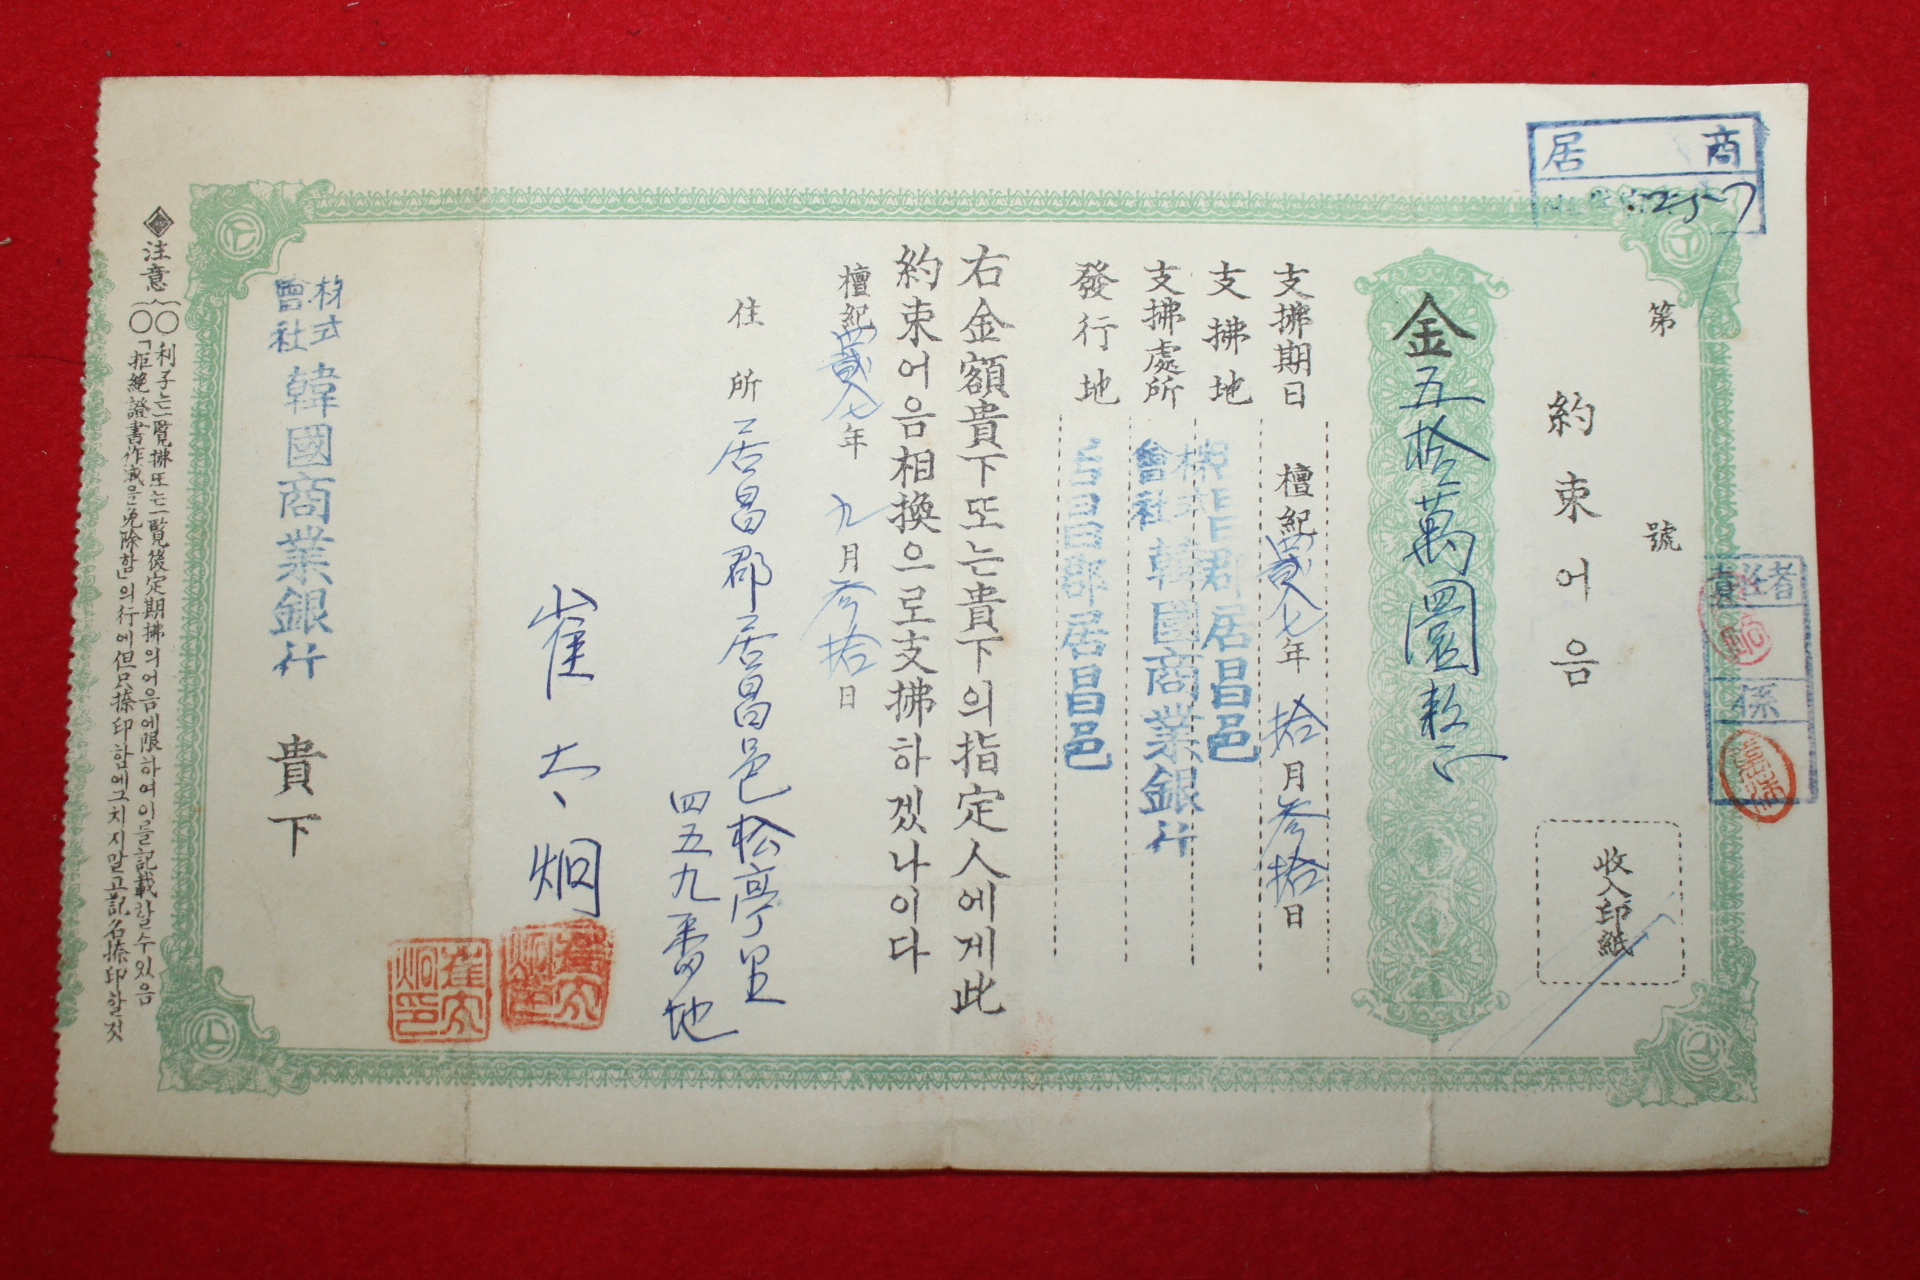 商 居
25-7
第 號
責任者
係
約束어음
收入印紙
金五拾萬圜整
支拂期日 檀紀四貳八七年拾月参拾日
支拂地 居昌郡居昌邑
支拂處所 株式會社韓國商業銀行
發行地 居昌郡居昌邑
右金額貴下또는貴下의指定人에게此
約束어음相換으로支拂하겠나이다
檀紀四貳八七年九月参拾日
住所 居昌郡居昌邑松亭里
四五九番地
崔 炯
株式會社韓國商業銀行 貴下
注意
○利子는一覽拂又는一覽後定期拂의어음에限하여이를記載할수있음
○「拒絶證書作成을免除함」의行에但只捺印함에그치지말고記名捺印할것